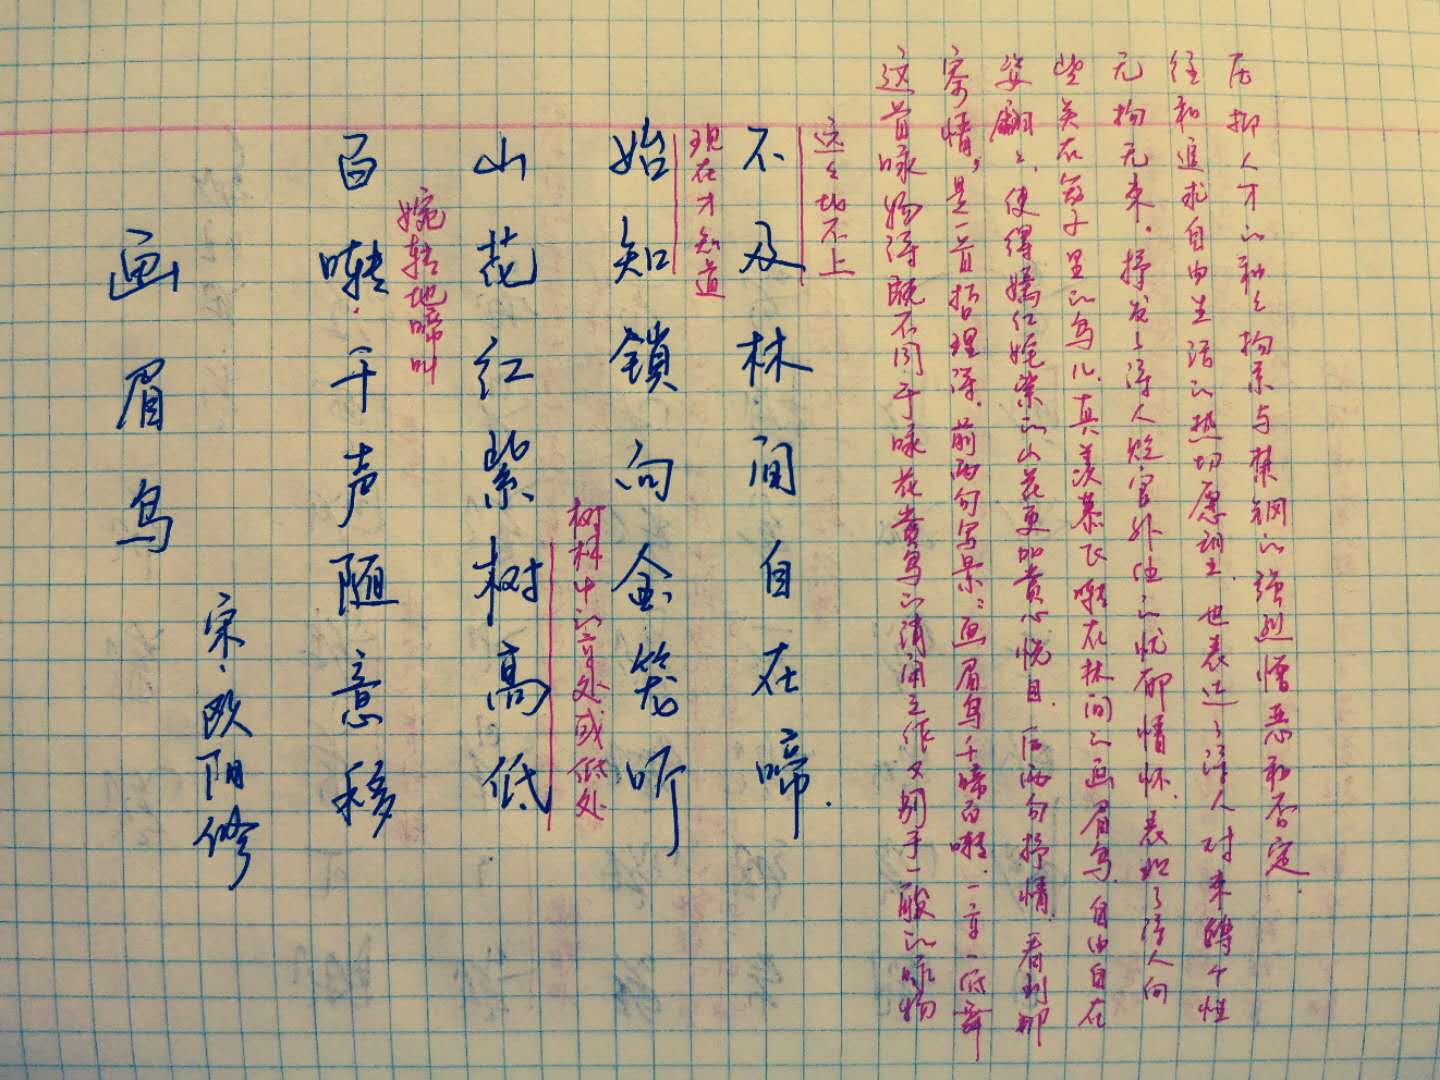 画眉鸟
宋·欧阳修
百啭千声随意移
婉转地啼叫
山花红紫树高低
树林中的高处或低处
始知锁向金笼听
现在才知道
不及林间自在啼.
远远地不上
这首咏物诗既不同于咏花赏鸟的消闲之作,又别于一般的咏物
寄情,是一首哲理诗.前两句写景:画眉鸟千啼百啭,一高一低舞
姿翩翩,使得嫣红姹紫的山花更加赏心悦目.后两句抒情,看到那
些关在笼子里的鸟儿,真羡慕飞啭在林间的画眉鸟,自由自在
无拘无束.抒发了诗人贬官外任的忧郁情怀,表现了诗人向
往和追求自由生活的热切愿望.也表达了诗人对束缚个性
压抑人才的种种拘束与禁锢的强烈憎恶和否定.